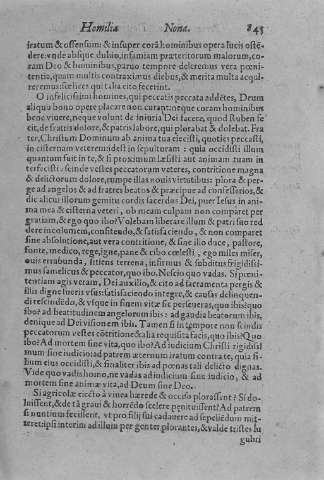 Homilia Nona. 845
iratum & offensum: & insuper corā hominibus opera lucis ostē-
dere: vnde absque dubio, infamiam præteritorum malorum, co-
ram Deo & hominibus, paruo tempore deleremus vera pœni-
tentia, quam multis contraximus diebus, & merita multa acqui-
reremus: fœlices qui talia cito fecerint.
O infelicissimi homines, qui peccatis peccata addētes, Deum
aliqua bono opere placare non curant: neque coram hominibus
bene viuere, neque volunt de iniuria Dei facere, quod Ruben fe
cit, de fratris dolore, & patris labore, qui plorabat & dolebat. Fra
ter, Christum Dominum ab anima tua eiecisti, quoties peccasti,
in cisternam veterem: idest in sepulturam: quia occidisti illum
quantum fuit in te, & si proximum læsisti aut animam tuam in
terfecisti: scinde vestes peccatorum veteres, contritione magna
& delictorum dolore, rumpe illas nouis virtutibus plora & per-
ge ad angelos & ad fratres beatos & præcipue ad confessorios, &
dic alicui illorum gemitu cordis sacerdos Dei, puer Iesus in ani-
mea & cisterna veteri, ob meam culpam non comparet per
gratiam, & ego quo ibo? Volebam liberare illum & patri suo red
dere incolumem, confitendo, & satisfaciendo, & non comparet
sine absolutione, aut vera contritione, & sine illo duce, pastore,
fonte, medico, rege, igne, pane & cibo cœlesti, ego miles miser,
ouis errabunda, sitiens terrena, infirmus & subditus frigidissi-
mus famelicus & peccator, quo ibo. Nescio quo vadas. Si pœni-
tentiam agis veram, Dei auxilio, & cito ad sacramenta pergis &
illis digne fueris vsus: satisfaciendo integre, & causas delinquen-
di rescindēdo, & vsque in finem vitæ sic perseueras, quo ibis? quo
ibo? ad beatitudinem angelorum ibis: ad gaudia beatorum ibis,
denique ad Dei visionem ibis. Tamen si in tempore non scindis
peccatorum vestes cōtritione & alia requisita facis, quo ibis? Quo
ibo? Ad mortem sine vita, quo ibo? Ad iudicium Christi rigidissi
mum sine iudicio: ad patrem æternum iratum contra te, quia fi-
lium eius occidisti, & finaliter ibis ad pœnas tali delicto dignas.
Vide quo vadis homo, ne vadas ad iudicium sine iudicio, & ad
mortem sine animæ vita, ad Deum sine Deo.
Si agricolæ eiecto à vinea hærede & occiso plorassent? Si do-
luissent, & de tā graui & horrēdo scelere penituissent? Ad patrem
si nuntium fecissent, vt pro filij sui cadauere ad sepeliēdum mit-
teret: ipsi interim ad illum pergenter plorantes, & valde tristes lu
gubri